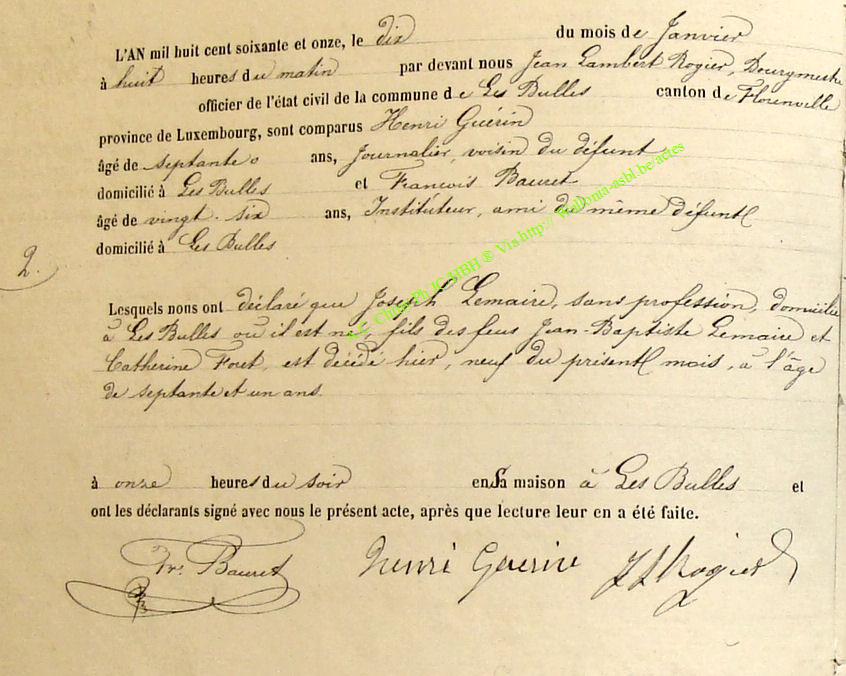 L'AN mil huit cent soixante et onze, le dix du mois de Janvier
à huit heures du matin par devant nous Jean Lambert Rogier, Bourgmestre
officier de l'état civil de la commune de Les Bulles canton de Florenville
province de Luxembourg, sont comparus Henri Guérin
âgé de septante ans, Journalier, voisin du défunt
domicilié à Les Bulles et François Bauret
âgé de vingt-six ans, Instituteur, ami du même défunt
domicilié à Les Bulles
2.
Lesquels nous ont déclaré que Joseph Lemaire, sans profession, domicilié
à Les Bulles où il est né, fils des feus Jean-Baptiste Lemaire et
Catherine Foret, est décédé hier, neuf du présent mois, à l'âge
de septante et un ans.
à onze heures du soir en sa maison à Les Bulles et
ont les déclarants signé avec nous le présent acte, après que lecture leur en a été faite.
Frs Bauret Henri Guerin J L Rogier
® Via http://wallonia-asbl.be/actes